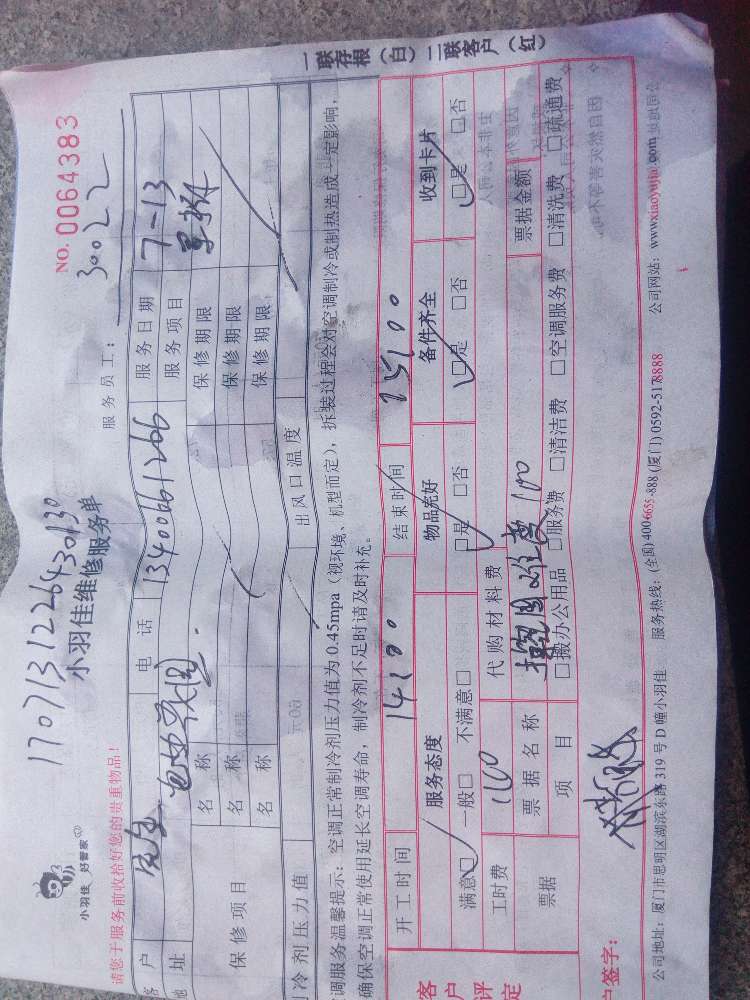 一联存根（白）二联客户（红）
NO. 0064383
30022
1707131226430130
小羽佳维修服务单
小羽佳 好管家
请您于服务前收拾好您的贵重物品！
服务员工：
客户 电话 13400661266 服务日期 7-13
地址 服务项目
保修项目 名称 保修期限
名称 保修期限
名称 保修期限
制冷剂压力值 出风口温度
调服务温馨提示：空调正常制冷剂压力值为0.45mpa（视环境、机型而定），拆装过程会对空调制冷或制热造成一定影响，
确保空调正常使用延长空调寿命，制冷剂不足时请及时补充。
开工时间 14:00 结束时间 15:00
客户评定 服务态度 物品完好 备件齐全 收到卡片
满意□ 一般□ 不满意□ □是 □否 □是 □否 □是 □否
工时费 100 代购材料费
票据 票据名称 100 票据金额
项目 □搬办公用品 □服务费 □清洁费 □空调服务费 □清洗费 □疏通费
户签字：
公司地址：厦门市思明区湖滨东路319号D幢小羽佳 服务热线：(全国)400-6655-888 (厦门) 0592-5178888 公司网站：www.xiaoyujia.com